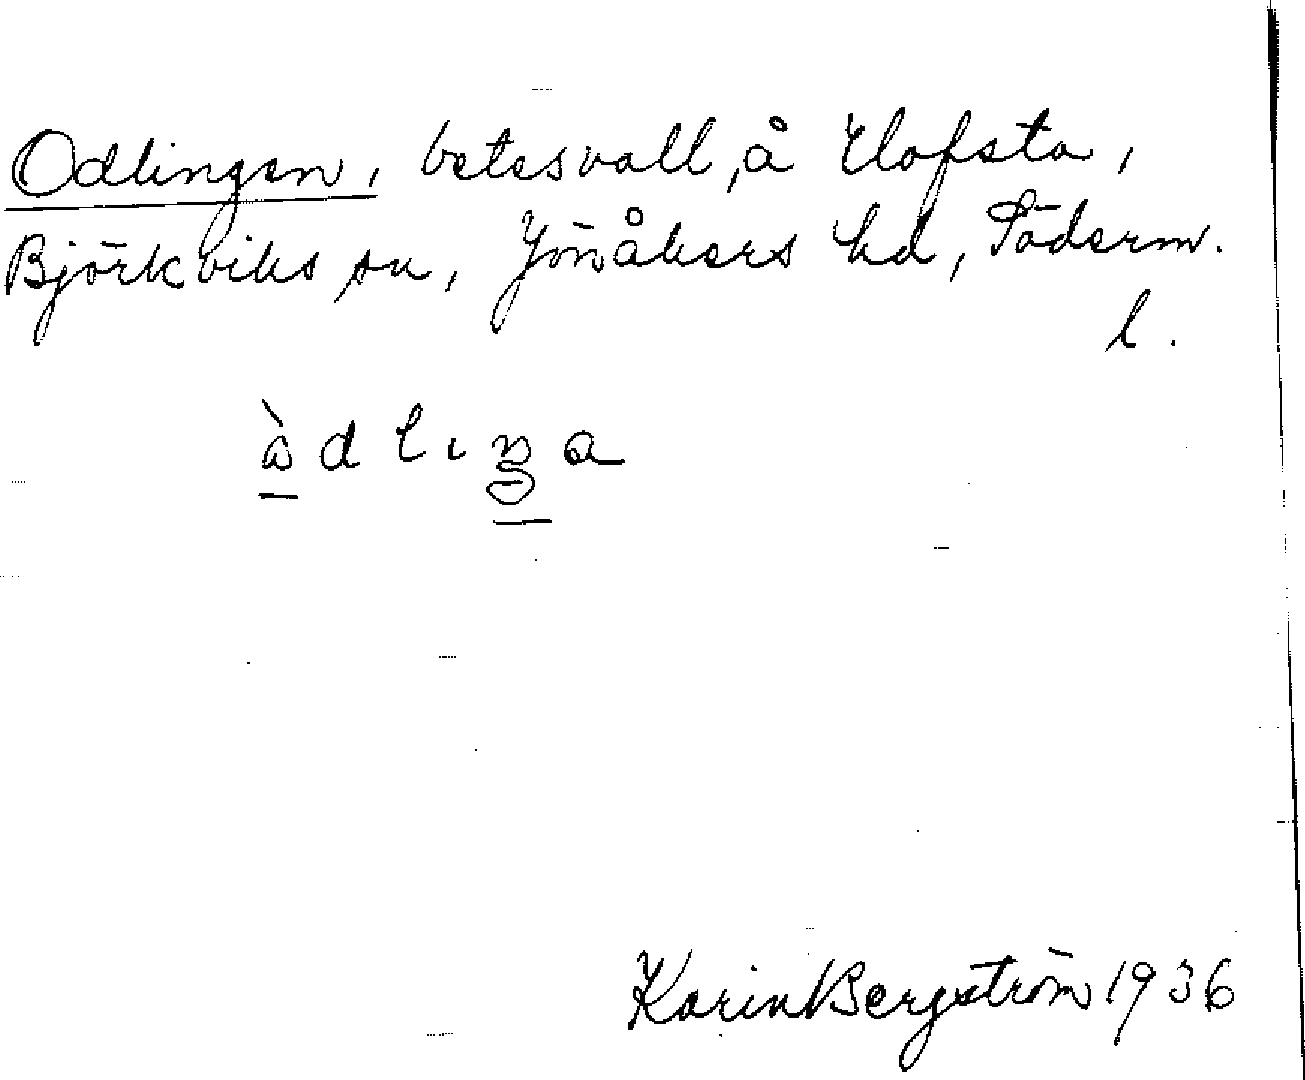 Odlingen, betesvall, å Elofsta,
Björkviks sn, Jönåkers hd, Söderm.
l.
Karin Bergström 1936